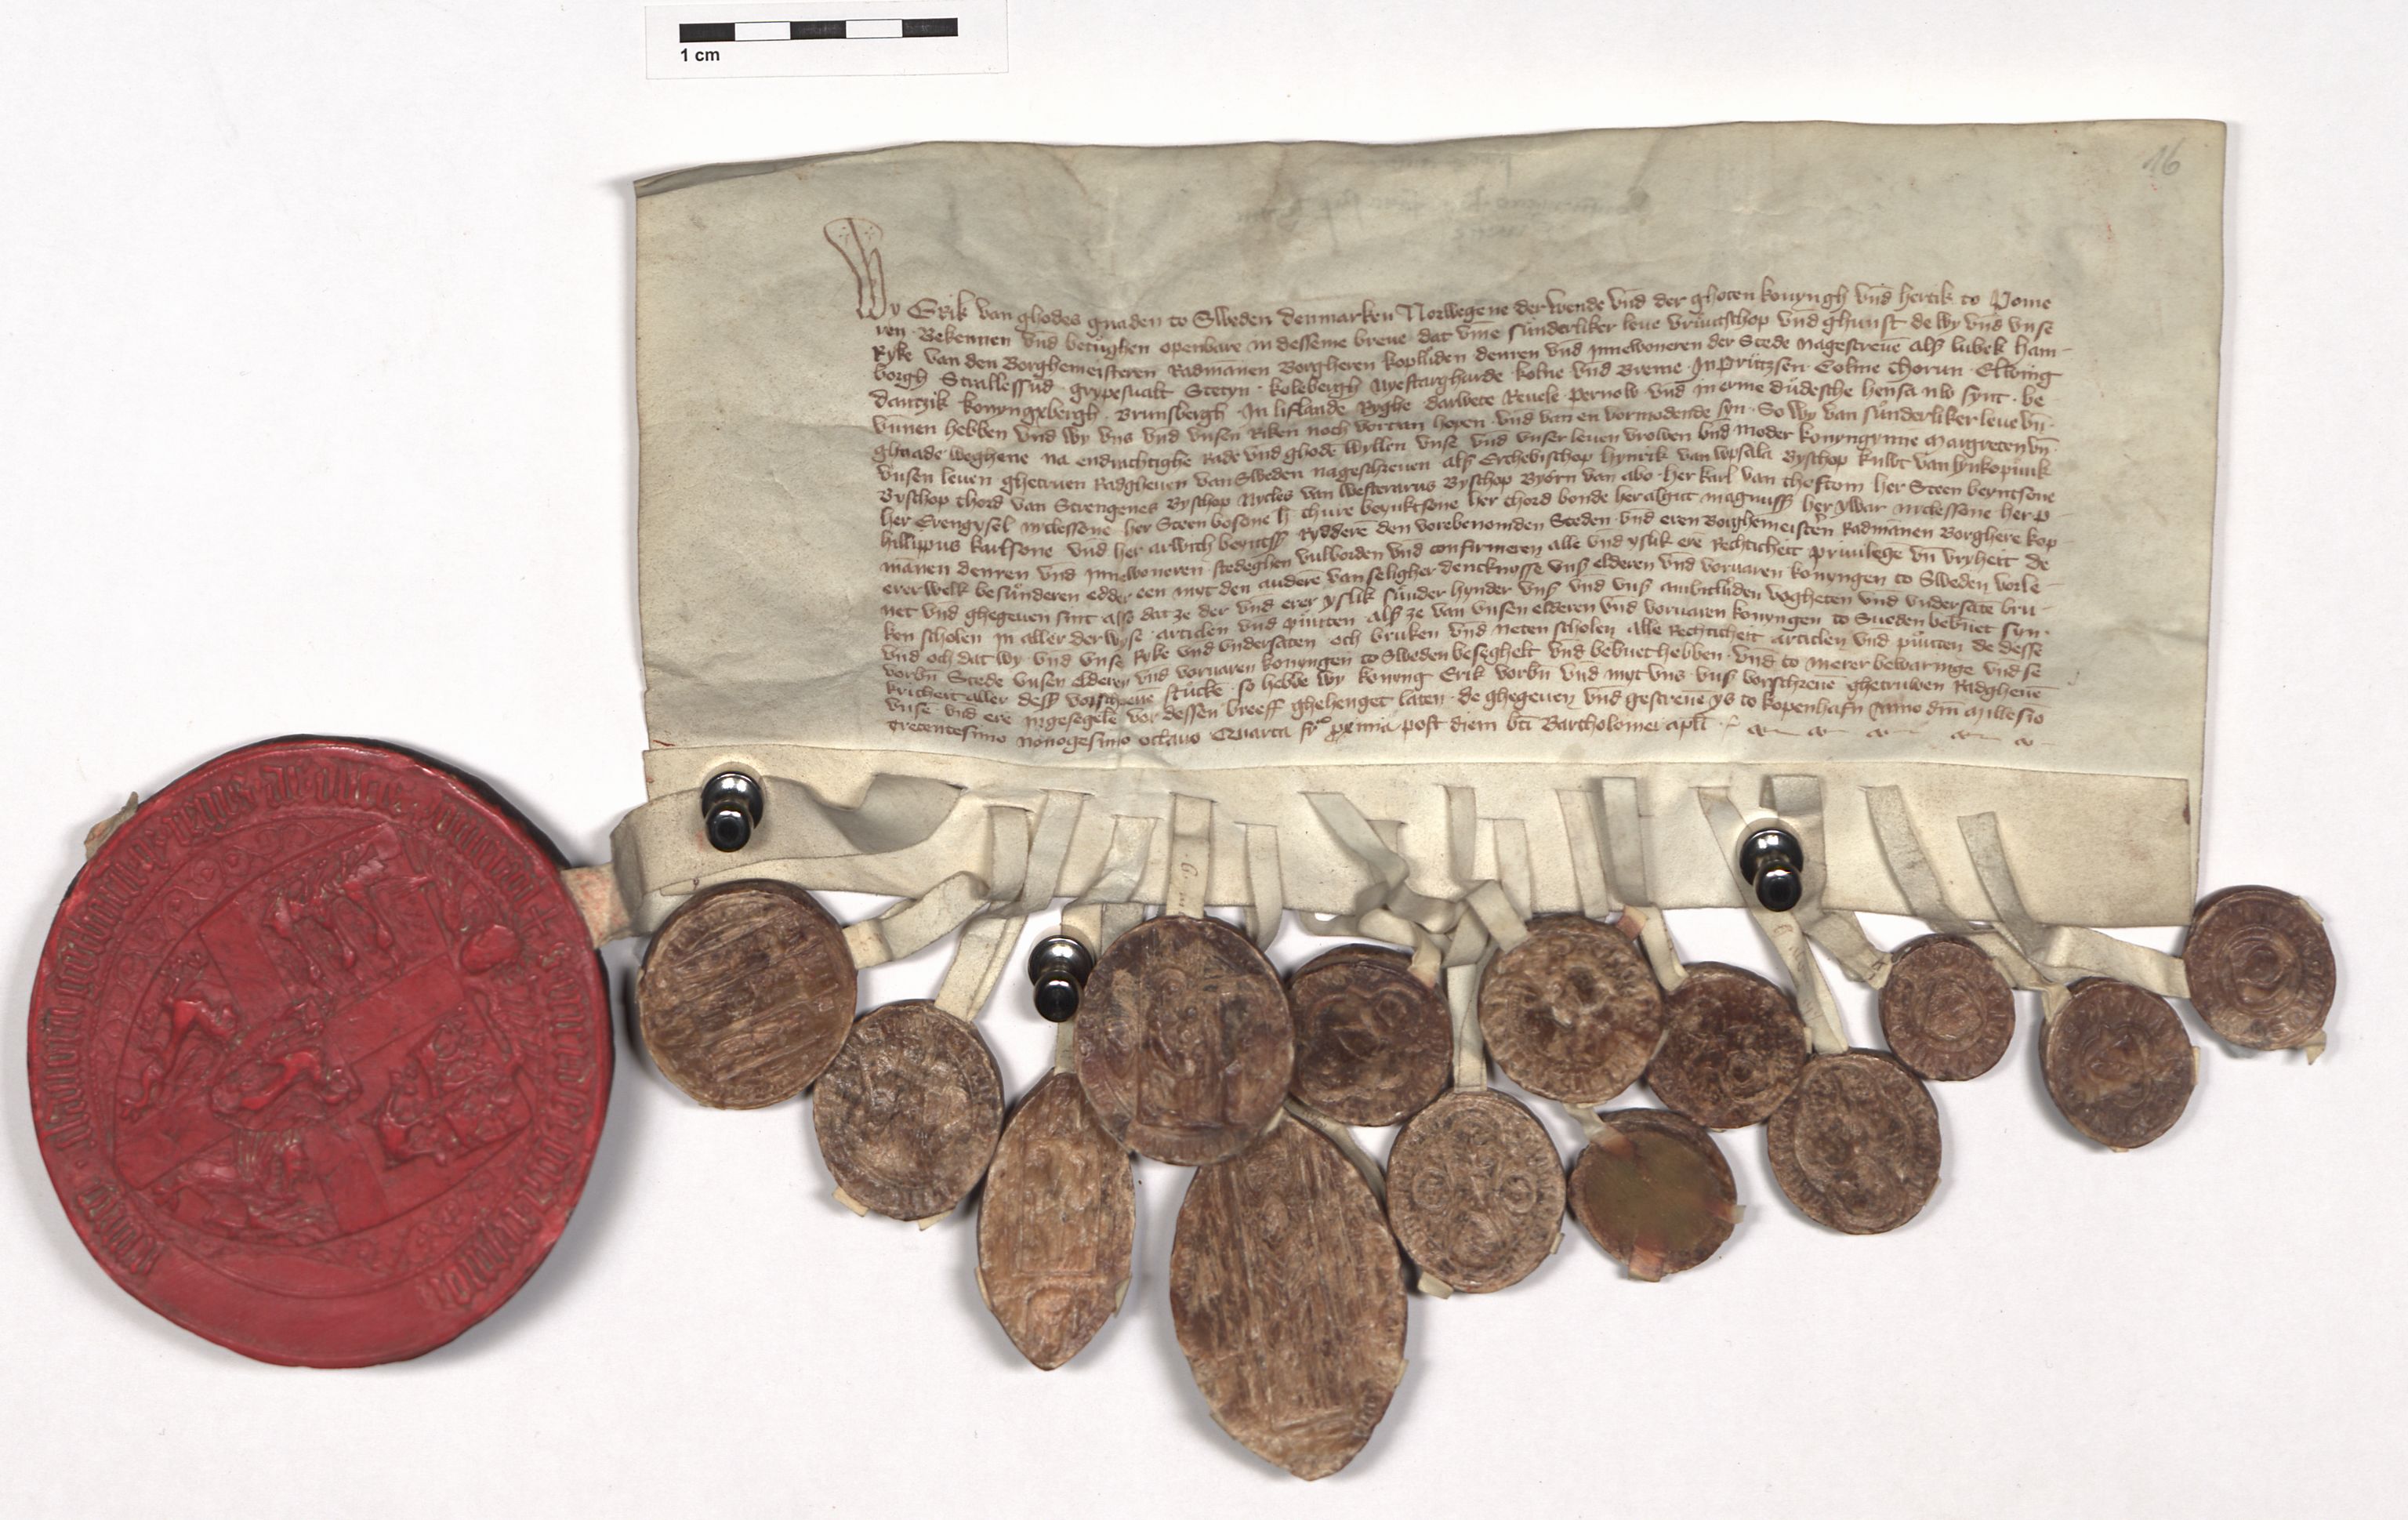 1 cm
16
Wy Erik van ghodes gnaden to Sweden denmarken Norwegene der wende vnd der ghoten konyngh vnd hertik to Pome
ren · Bekennen vnd betughen openbare in desseme breue dat vme sunderliker leue vruntschop vnd ghunst de wy vnd vnse
Ryke van den Borghemeisteren Radmanen Borgheren kopluden denren vnd Innewoneren der Stede nagescreuen als lubek ham-
borgh Strallessund · grypesualt Stetyn · kolebergh Nyestargharde · kolne vnd Breme · In prutzsen · Colme Thorun · Elbing
dantzik konyngxbergh · Brunsbergh · In liflande Ryghe darbete Reuele Pernow · vnd in erme dudesche hensa nw synt · be-
vunnen hebben vnd wy vns vnd vnsen Riken noch vortan hopen · vnd van en vormodende syn · So wy van sunderliker leue vn-
ghnade weghene na endrachtighe rade vnd ghode wyllen vnse vnd vnser leuen vrowen vnd moder konyngynne Margreten vn
vnsen leuen ghetruen Radgheuen van Sweden nagescreuen als Erchebischop hynrik van vpsala Byschop knwt van lynkopink
Byschop thord van Strengenes Byschop Nycles van westerarus Byschop Byorn van abo · her karl van thestom her Steen beyntsone
her Erengysel nyclessone her Steen bosone h thure beynktsone her thord bonde her algut magnuss her ywar nyclessone · her p-
hillippus karlsone vnd her arwith beyntss Rydderen den vorebenomden Steden · vnd eren Borghemeisteren Radmanen Borghere kop-
manen denren vnd Innewoneren · stedeghen vulborden vnd confirmeren alle vnd yslik ere Rechticheit priuilege vn vryheit de
erer welk besunderen edder een myt den anderen van seligher dencknosse vns elderen vnd voruaren konyngen to Sweden vorle-
net vnd ghegeuen sint also dat ze der vnd erer yslik sunder hynder vns vnd vns ambitluden vogheten vnd vndersaten bru-
ken scholen in aller der wyse · articlen vnd puncten als ze van vnsen elderen vnd voruaren konyngen to Sueden bebreuet syn ·
vnd och dat wy vnd vnse Ryke vnd vndersaten och bruken vnd neten scholen alle Rechticheit articlen vnd puncten de desse
vorbn Stede vnsen elderen vnd voruaren konyngen to Sweden beseghelt vnd bebreuet hebben · vnd to merer bewaringe vnd se
kricheit aller dess vorschreuene stucke · so hebbe wy konyng Erik vorbn vnd myt vns · vns vorschreuene ghetruwen Radgheuen
vnse vnd ere ingesegele vor dessen breeff ghehenget laten · de ghegeuen vnd gescreuen ys to kopenhafn Anno dni Millesio
trecentesimo nonogesimo octauo Quarta fra proxima post diem bti Bartholomei apli ·